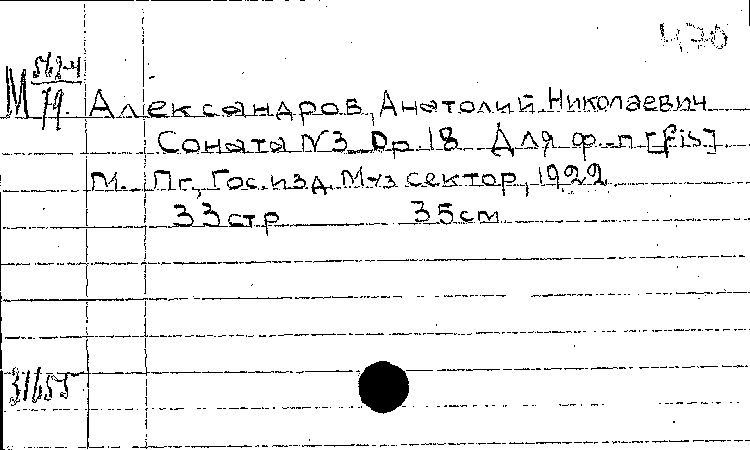 470
М 562-4
79
Александров, Анатолий Николаевич
Соната N3 Op. 18 Для ф.-п [fis]
М. Пг., Гос. изд. Муз сектор, 1922
33 стр 35 см
31655